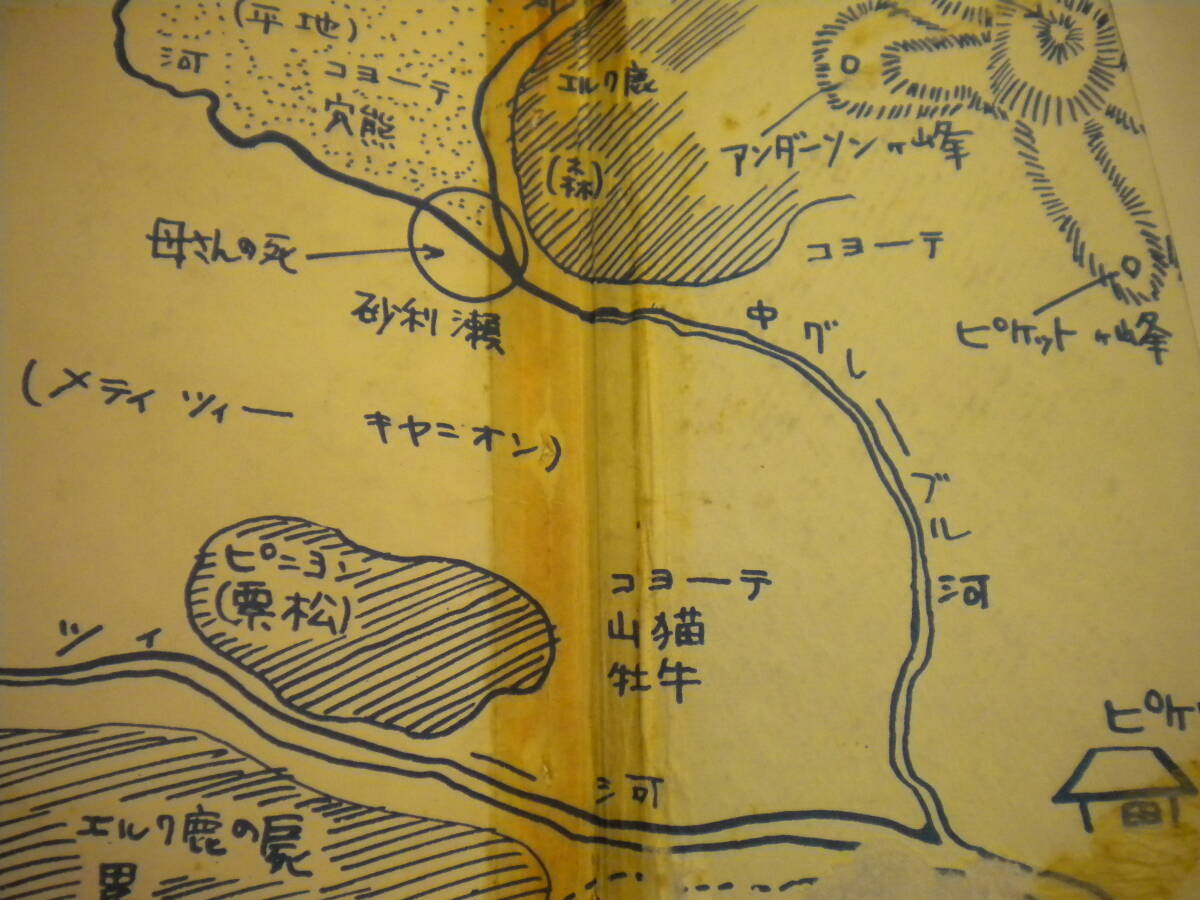 (平地)
河
コヨーテ
穴熊
エルク鹿
(森)
アンダーソンヶ峰
母さんの死
コヨーテ
砂利瀬
ピケットヶ峰
中グレーブル河
(メティツィー キヤニオン)
ピニヨン
(栗松)
コヨーテ
山猫
牡牛
ツィー河
ピケ
エルク鹿の屍